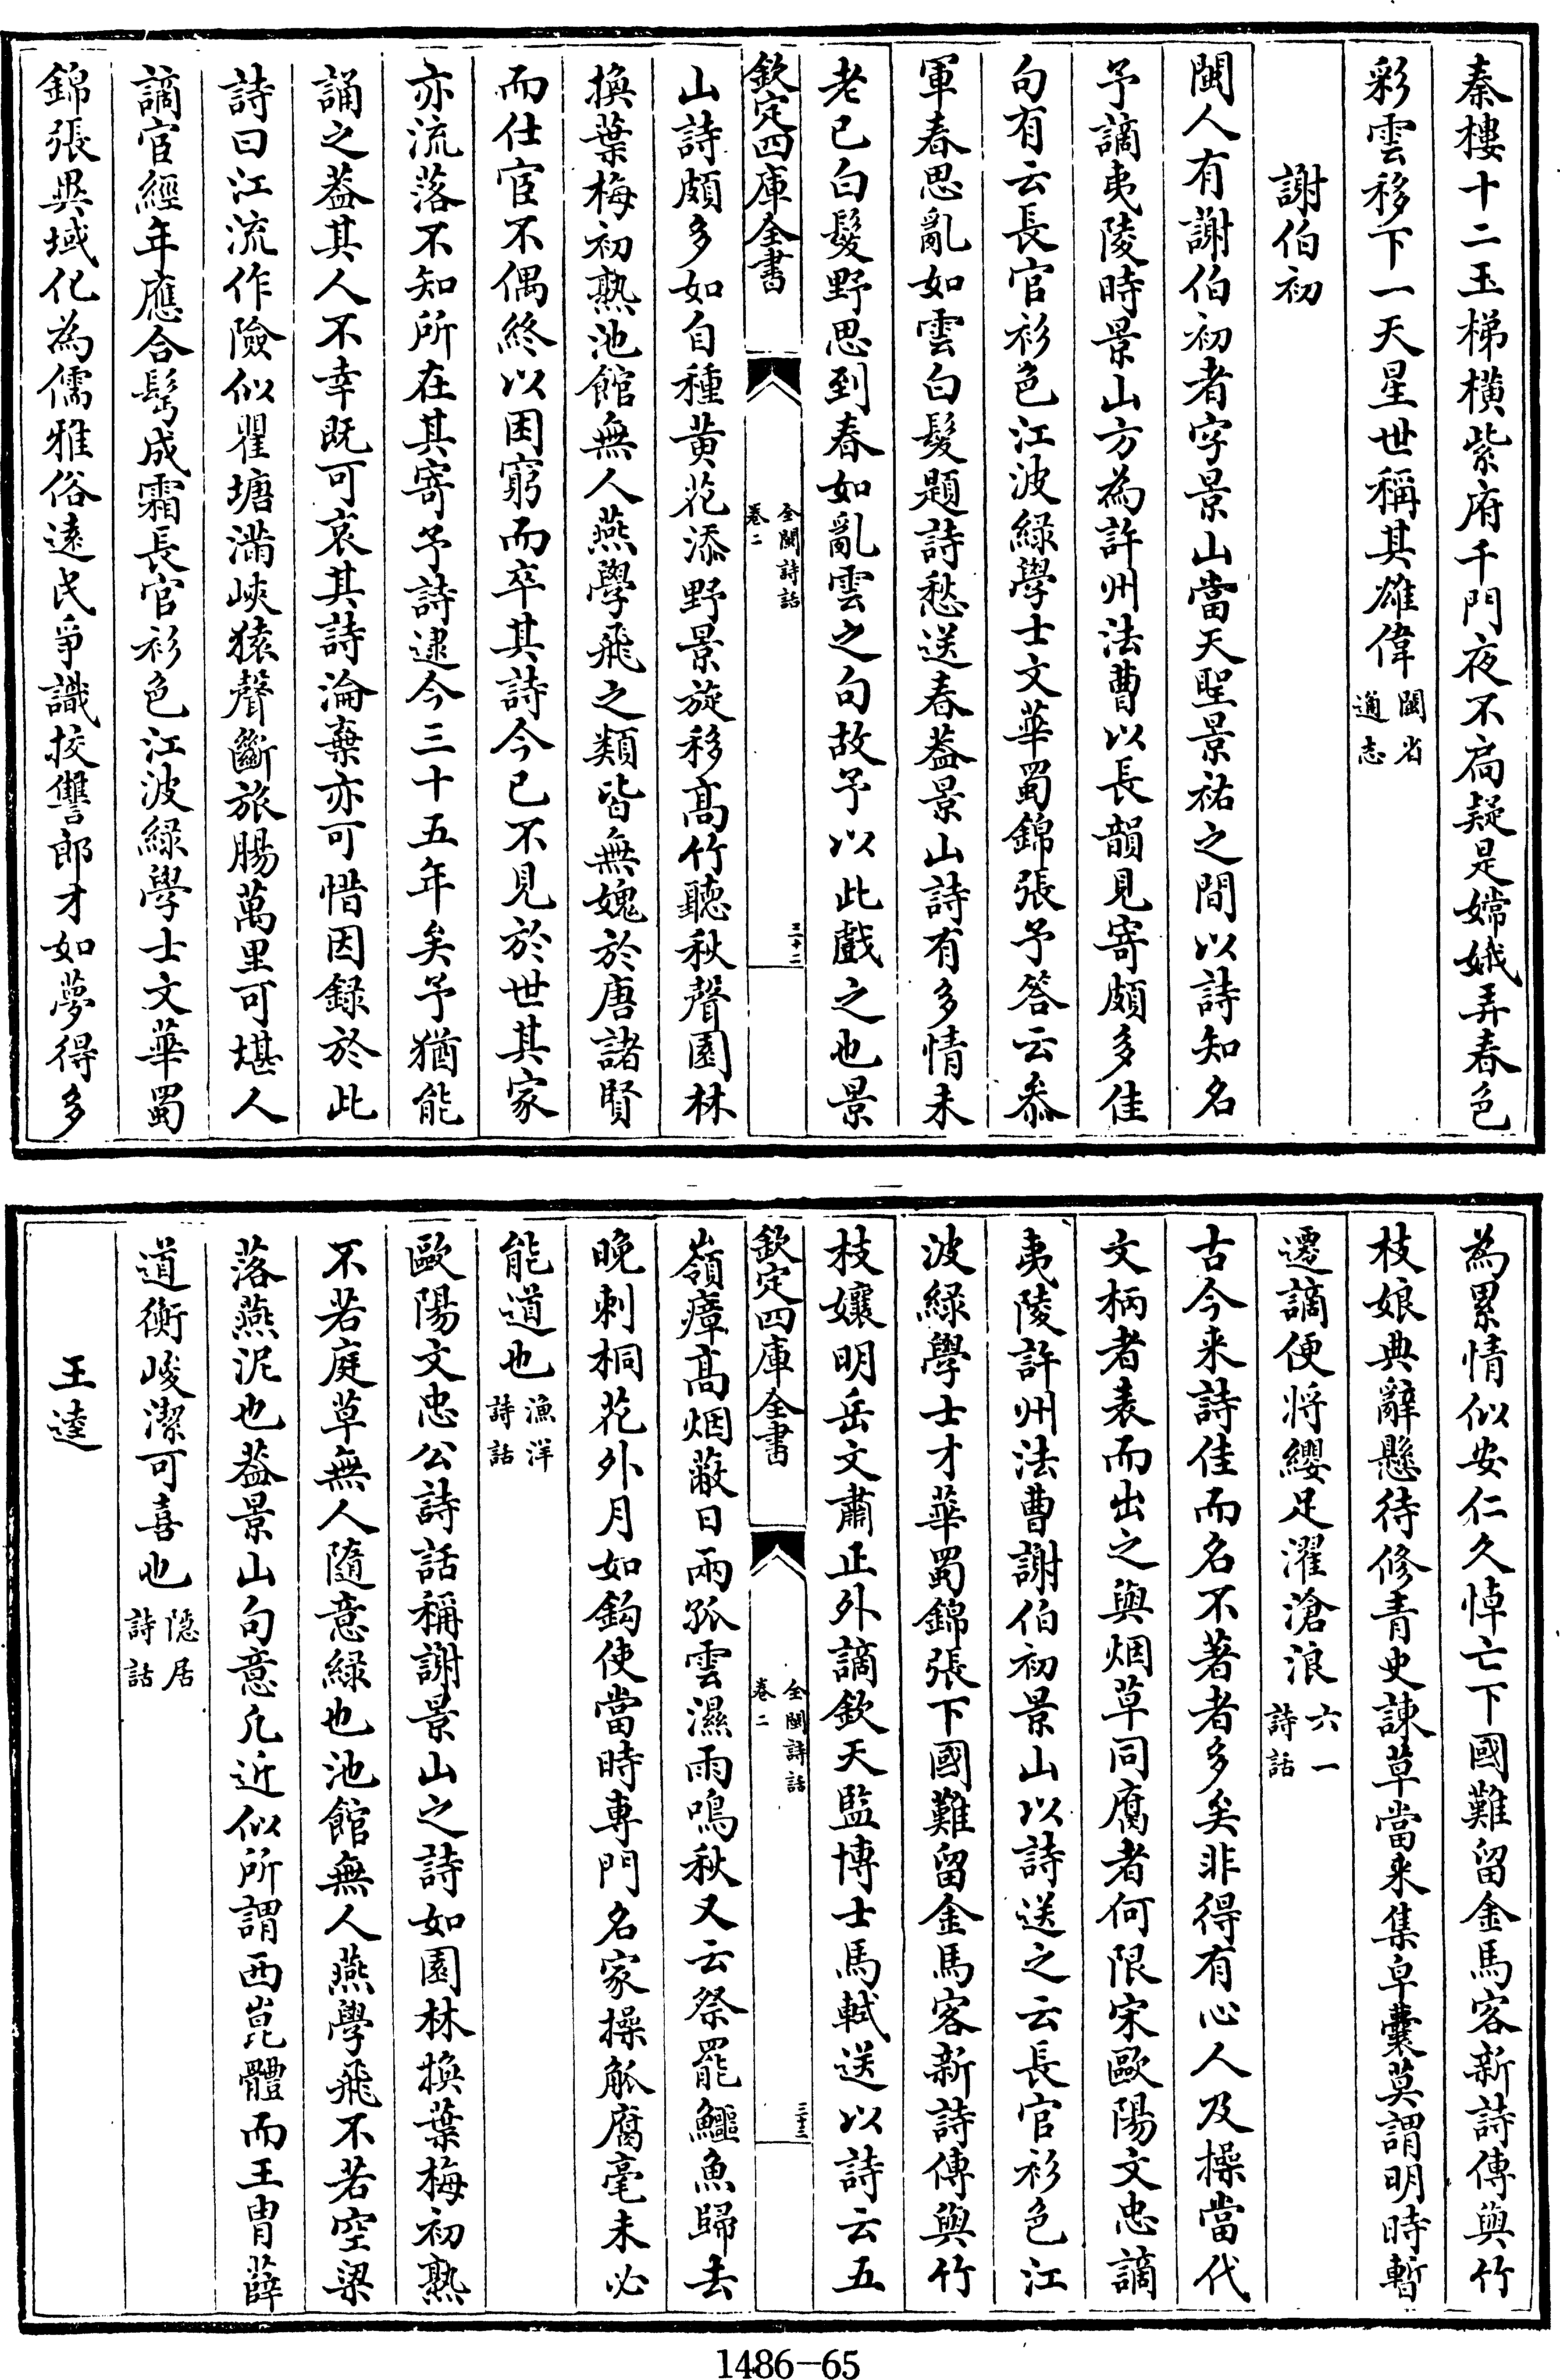 秦樓十二玉梯橫紫府千門夜不扃疑是嫦娥弄春色
彩雲移下一天星世稱其雄偉閩省通志
謝伯初
閩人有謝伯初者字景山當天聖景祐之間以詩知名
予謫夷陵時景山方為許州法曹以長韻見寄頗多佳
句有云長官衫色江波綠學士文華蜀錦張予答云叅
軍春思亂如雲白髮題詩愁送春葢景山詩有多情未
老已白髮野思到春如亂雲之句故予以此戲之也景
欽定四庫全書
全閩詩話
卷二
三十二
山詩頗多如自種黃花添野景旋移髙竹聽秋聲園林
換葉梅初熟池館無人燕學飛之類皆無媿於唐諸賢
而仕宦不偶終以困窮而卒其詩今已不見於世其家
亦流落不知所在其寄予詩逮今三十五年矣予猶能
誦之葢其人不幸既可哀其詩淪棄亦可惜因録於此
詩曰江流作險似瞿塘滿峽猿聲斷旅腸萬里可堪人
謫宦經年應合鬂成霜長官衫色江波綠學士文華蜀
錦張異域化為儒雅俗遠民爭識挍讐郎才如夢得多
為累情似安仁久悼亡下國難留金馬客新詩傳與竹
枝娘典辭懸待修青史諫草當來集皁囊莫謂明時暫
遷謫便將纓足濯滄浪六一詩話
古今来詩佳而名不著者多矣非得有心人及操當代
文柄者表而出之與烟草同腐者何限宋歐陽文忠謫
夷陵許州法曹謝伯初景山以詩送之云長官衫色江
波緑學士才華蜀錦張下國難留金馬客新詩傳與竹
枝孃明岳文肅正外謫欽天監博士馬軾送以詩云五
欽定四庫全書
全閩詩話
卷二
三十三
嶺瘴髙烟蔽日兩孤雲濕雨鳴秋又云祭罷鱷魚歸去
晚刺桐花外月如鈎使當時專門名家操觚腐毫未必
能道也漁洋詩話
歐陽文忠公詩話稱謝景山之詩如園林換葉梅初熟
不若庭草無人隨意緑也池館無人燕學飛不若空梁
落燕泥也葢景山句意凡近似所謂西崑體而王胄薛
道衡峻潔可喜也隠居詩話
王逵
1486-65